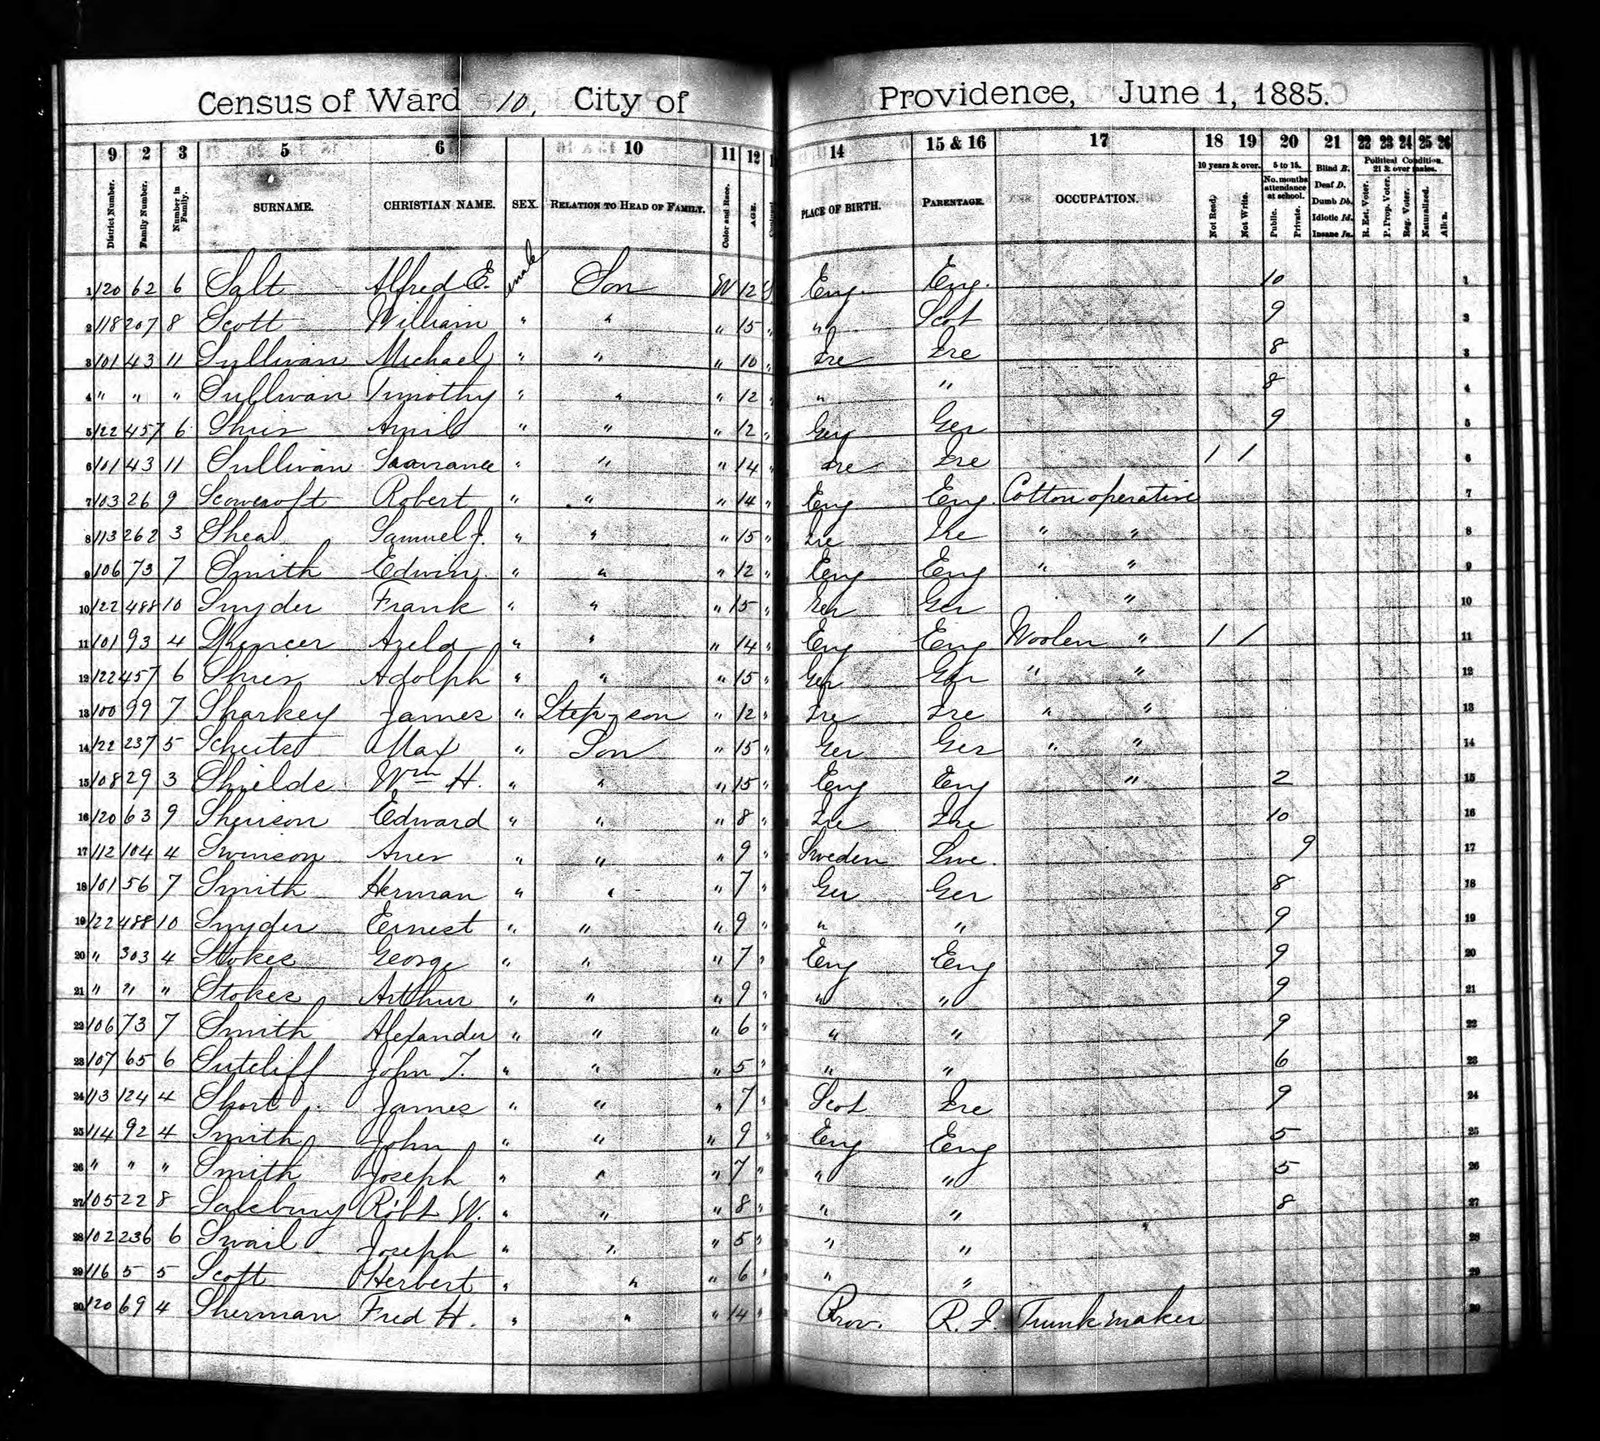 Census of Ward 10, City of Providence, June 1, 1885.
9 2 3 5 6 10 11 12 14 15 & 16 17 18 19 20 21 22 23 24 25 26
10 years & over. 5 to 15. Political Condition. 21 & over males.
District Number. Family Number. Number in Family. SURNAME. CHRISTIAN NAME. SEX. RELATION TO HEAD OF FAMILY. Color and Race. AGE. PLACE OF BIRTH. PARENTAGE. OCCUPATION. Not Ready Not Write. No. months attendance at school. Public. Private. Blind B. Deaf D. Dumb Db. Idiotic Id. Insane In. R. Est. Voter. P. Prop. Voter. Reg. Voter. Naturalized. Alien.
1 120 62 6 Salt Alfred E. male Son W 12 S Eng. Eng. 10 1
2 118 207 8 Scott William " " " 15 " " Scot 9 2
3 101 43 11 Sullivan Michael " " " 10 " Ire Ire 8 3
4 " " " Sullivan Timothy " " " 12 " " " 8 4
5 122 457 6 " " " 12 " Ger Ger 9 5
6 101 43 11 Sullivan " " " 14 " Ire Ire 1 1 6
7 103 26 9 Scowcroft Robert " " " 14 " Eng Eng Cotton operative 7
8 113 262 3 Shea Samuel J. " " " 15 " Ire Ire " " 8
9 106 73 7 Smith Edwin " " " 12 " Eng Eng " " 9
10 122 488 10 Snyder Frank " " " 15 " Ger Ger " 10
11 101 93 4 Spencer " " " 14 " Eng Eng Woolen " 1 1 11
12 122 457 6 Adolph " " " 15 " Ger Ger " " 12
13 100 99 7 Sharkey James " Step-son " 12 " Ire Ire " " 13
14 122 237 5 Max " Son " 15 " Ger Ger " " 14
15 108 29 3 Shields Wm H. " " " 15 " Eng Eng " 2 15
16 120 63 9 Edward " " " 8 " Ire Ire 10 16
17 112 104 4 Swenson " " " 9 " Sweden Swe. 9 17
18 101 56 7 Smith Herman " " " 7 " Ger Ger 8 18
19 122 488 10 Snyder Ernest " " " 9 " " " 9 19
20 " 303 4 Stokes George " " " 7 " Eng Eng 9 20
21 " " " Stokes Arthur " " " 9 " " " 9 21
22 106 73 7 Smith Alexander " " " 6 " " " 9 22
23 107 65 6 Sutcliff John T. " " " 5 " " " 6 23
24 113 124 4 Short James " " " 7 " Scot Ire 9 24
25 114 92 4 Smith John " " " 9 " Eng Eng 5 25
26 " " " Smith Joseph " " " 7 " " " 5 26
27 105 22 8 Salsbury Robt W. " " " 8 " " " 8 27
28 102 236 6 Swail Joseph " " " 5 " " " 28
29 116 5 5 Scott Herbert " " " 6 " " " 29
30 120 69 4 Sherman Fred H. " " " 14 " Prov. R.I. Trunk maker 30